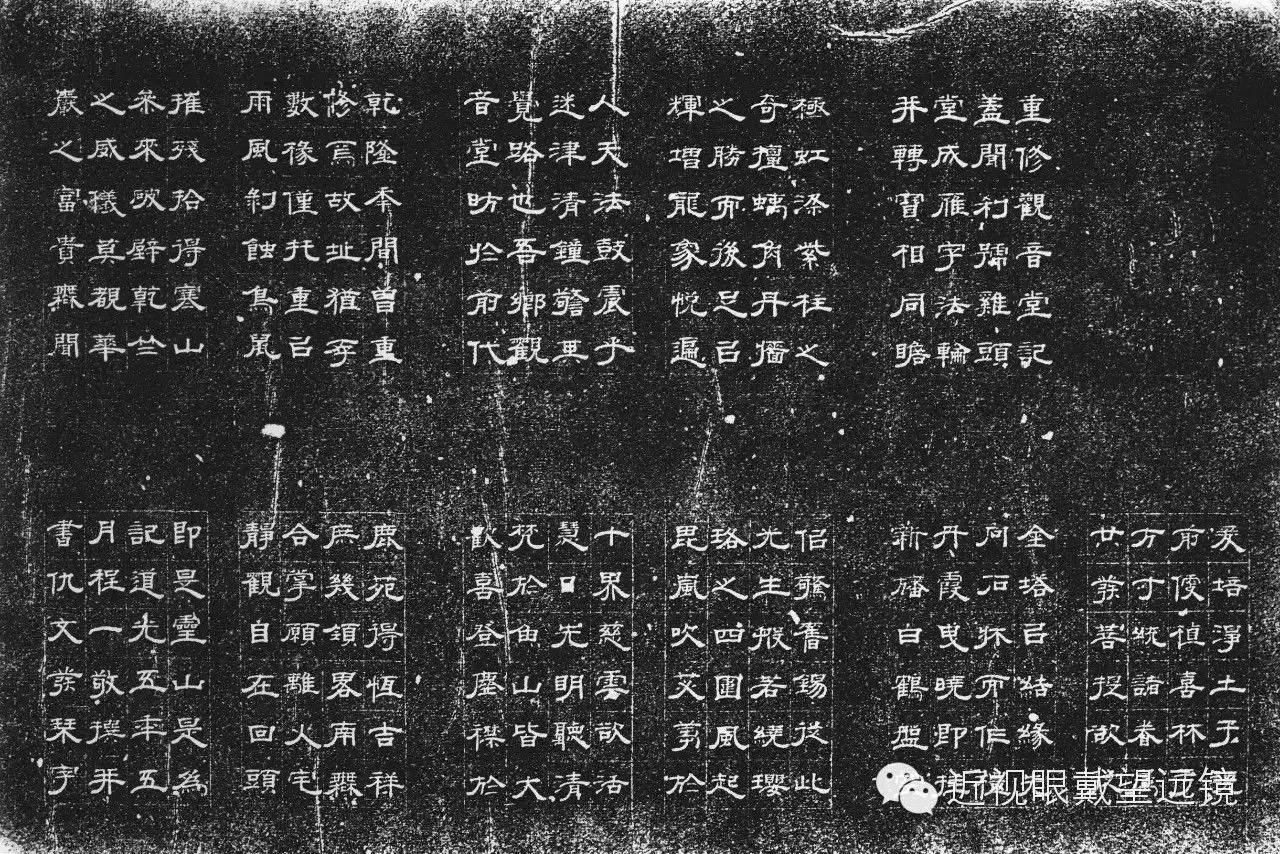 重修觀音堂記
蓋聞利號雞頭
堂成雁宇法輪
并轉寶相同瞻
極虹梁紫柱之
奇擅螭角丹墻
之勝而後足以
輝增龍象悅遍
人天法鼓震于
迷津清鐘警其
覺路也吾鄉觀
音堂昉於前代
乾隆年間曾重
修焉故址猶存
數椽僅托重以
雨風剝蝕鳥鼠
摧殘拾得寒山
來破壁乾竺
之威儀莫覩華
嚴之富貴無聞
爰培淨土于
前後植喜林于
方寸統諸眷屬
廿發菩提欲
金塔以結緣
向石杯而作
丹霞曳曉即
新旛白鶴盤
侶驚奮錫從此
光生般若繞瓔
珞之四圍風起
毘嵐吹於
十界慈雲敷活
慧日光明聽清
梵於魚山皆大
歡喜登塵襟於
鹿苑得恆吉祥
庶幾領畧南無
合掌願離火宅
靜觀自在回頭
即是靈山是為
記道光五年五
月程一敬撰并
書仇文發琹字
近视眼戴望远镜